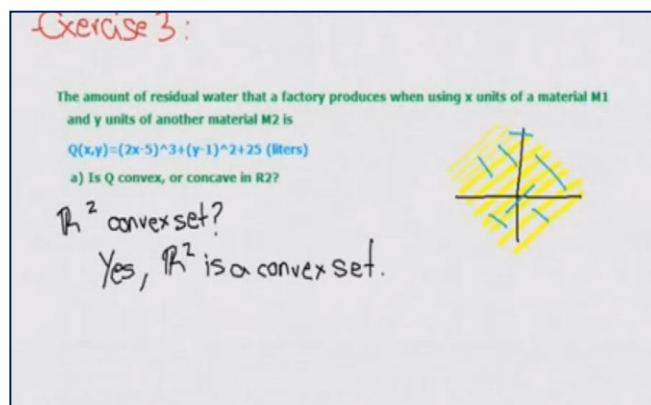 Exercise 3:
The amount of residual water that a factory produces when using x units of a material M1
and y units of another material M2 is
Q(x,y)=(2x-5)^3+(y-1)^2+25 (liters)
a) Is Q convex, or concave in R2?
ℝ² convex set?
Yes, ℝ² is a convex set.